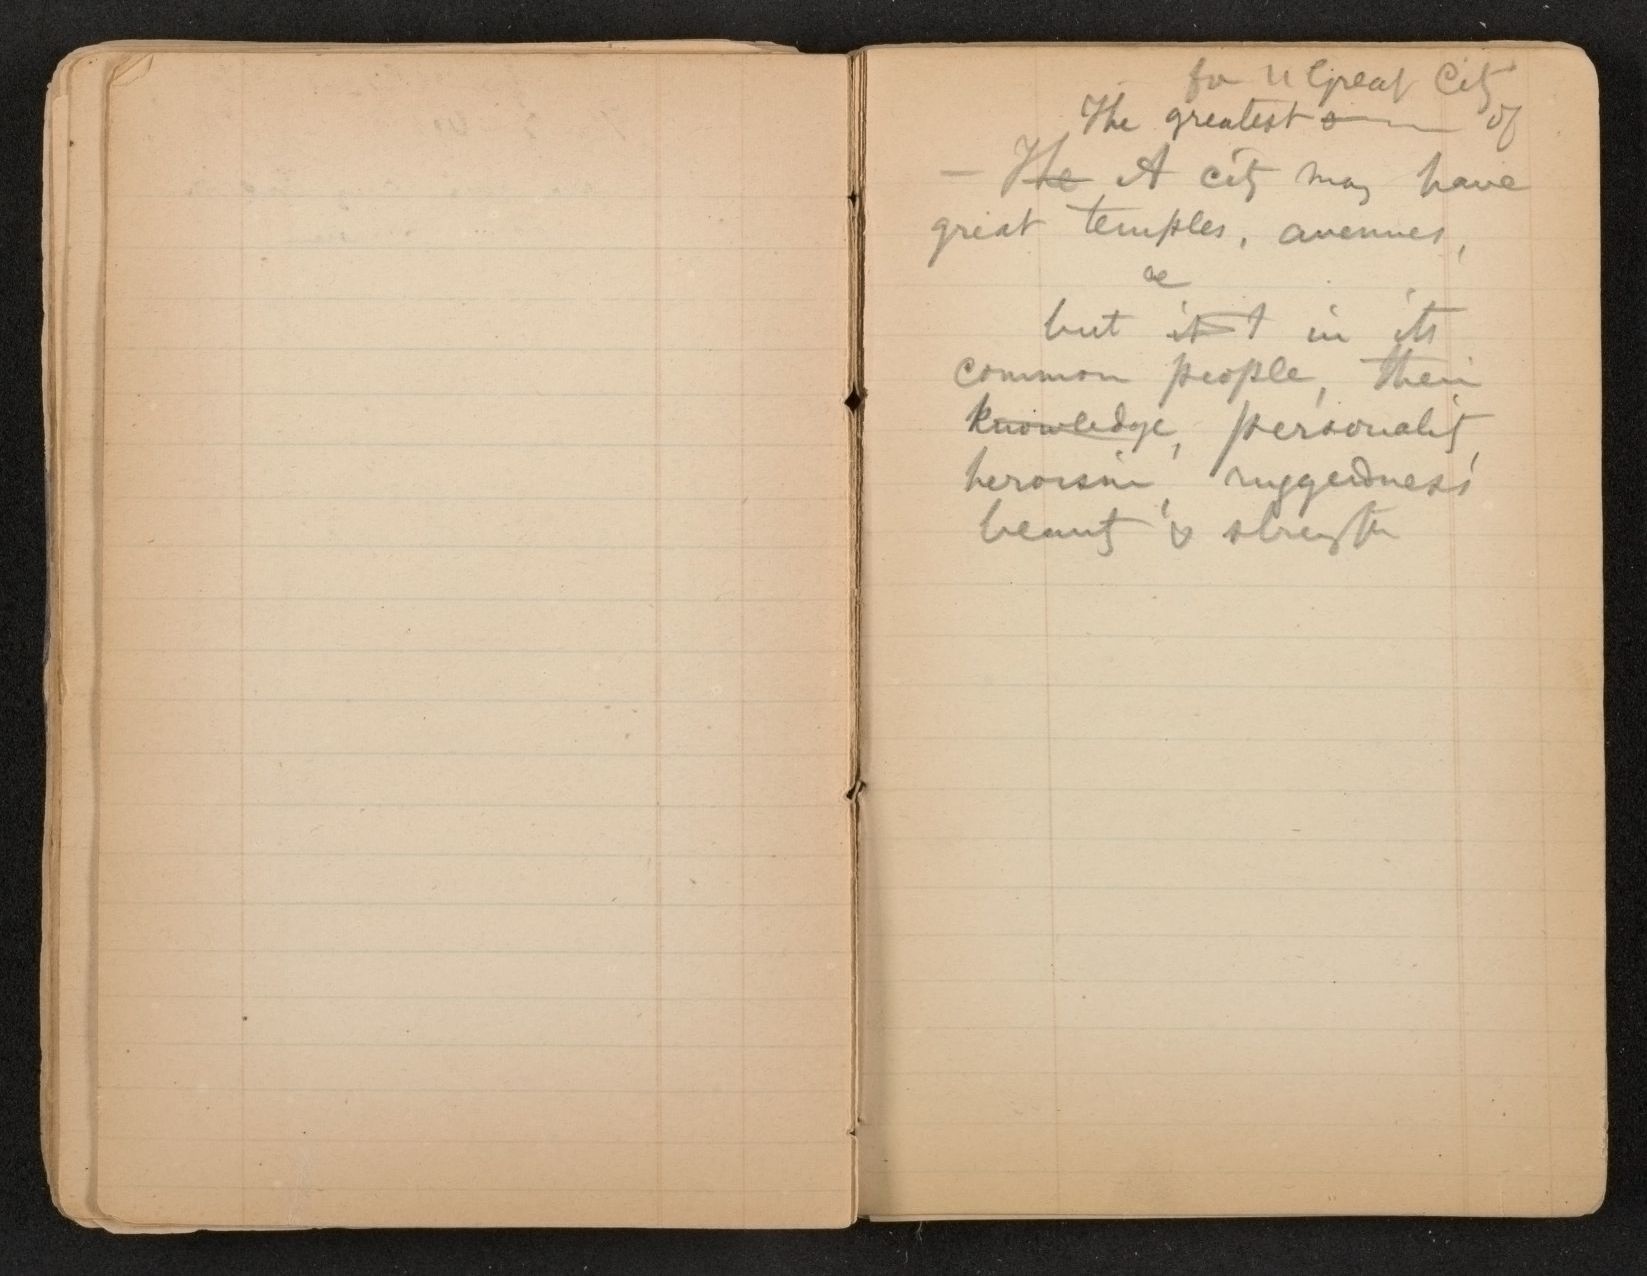 for u Great City
The greatest of
— The A city may have
great temples, avenues,
but it in its
common people, their
knowledge, personality,
heroism, ruggedness,
beauty & strength